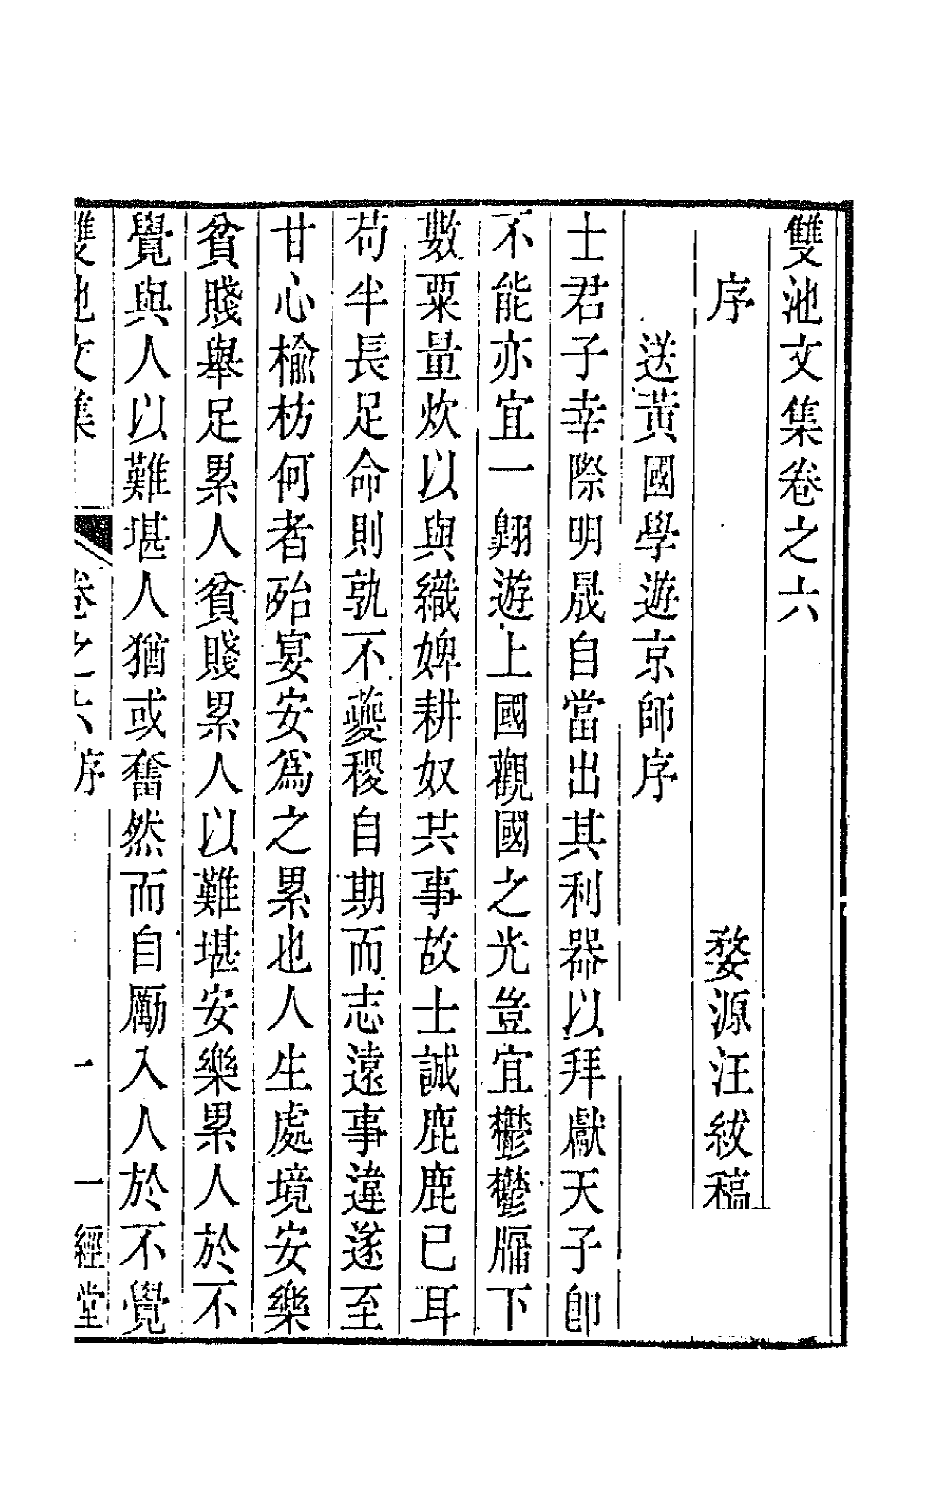 雙池文集卷之六
序
婺源汪紱稿
送黃國學遊京師序
士君子幸際明晟自當出其利器以拜獻天子卽
不能亦宜一翺遊上國觀國之光豈宜鬱鬱牖下
數粟量炊以與織婢耕奴共事故士誠鹿鹿已耳
苟半長足命則孰不夔稷自期而志遠事違遂至
甘心榆枋何者殆宴安爲之累也人生處境安樂
貧賤舉足累人貧賤累人以難堪安樂累人於不
覺與人以難堪人猶或奮然而自勵入人於不覺
雙池文集
卷之六 序
一
一經堂